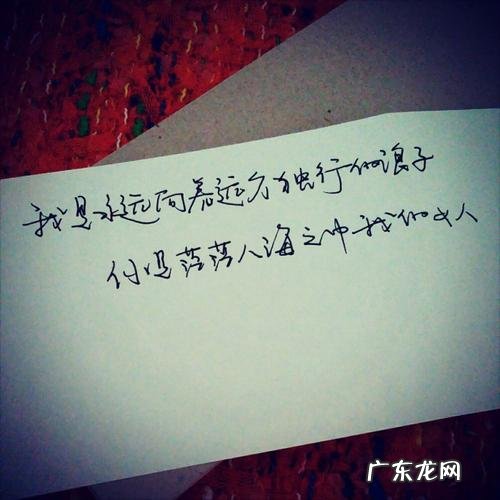 我是永远向着远方独行的浪子
你是茫茫人海之中我的女人
广东龙网